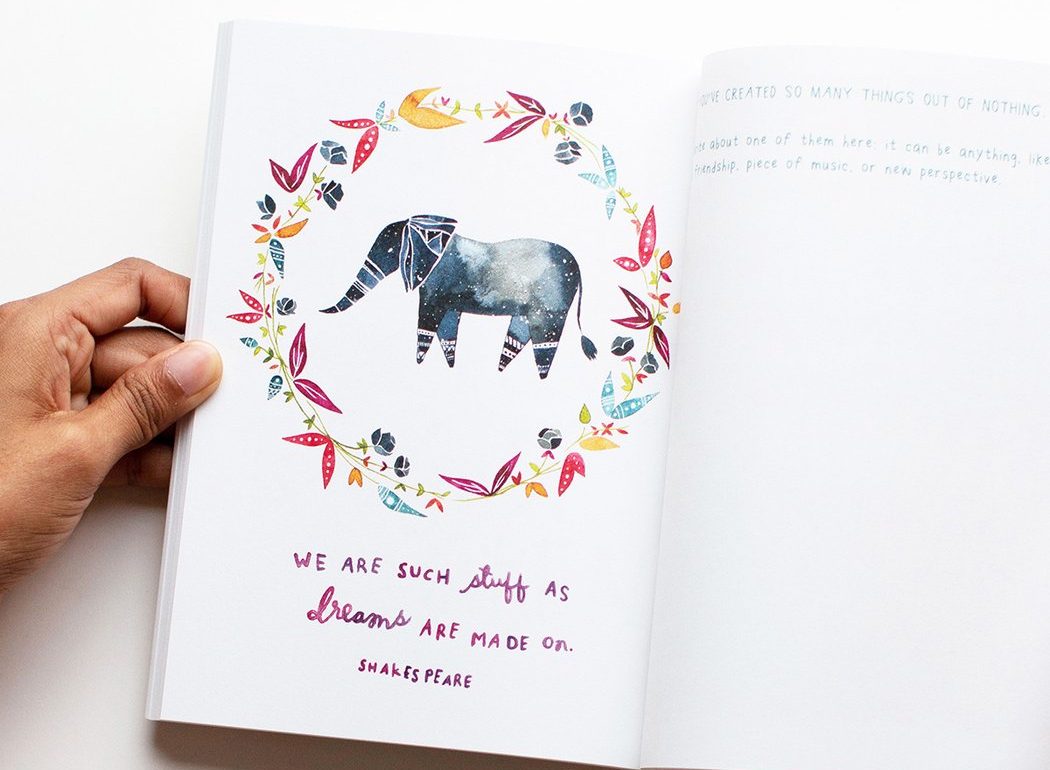 WE ARE SUCH stuff AS
dreams ARE MADE on.
SHAKESPEARE
OU'VE CREATED SO MANY THINGS OUT OF NOTHING.
about one of them here; it can be anything, like
friendship, piece of music, or new perspective.